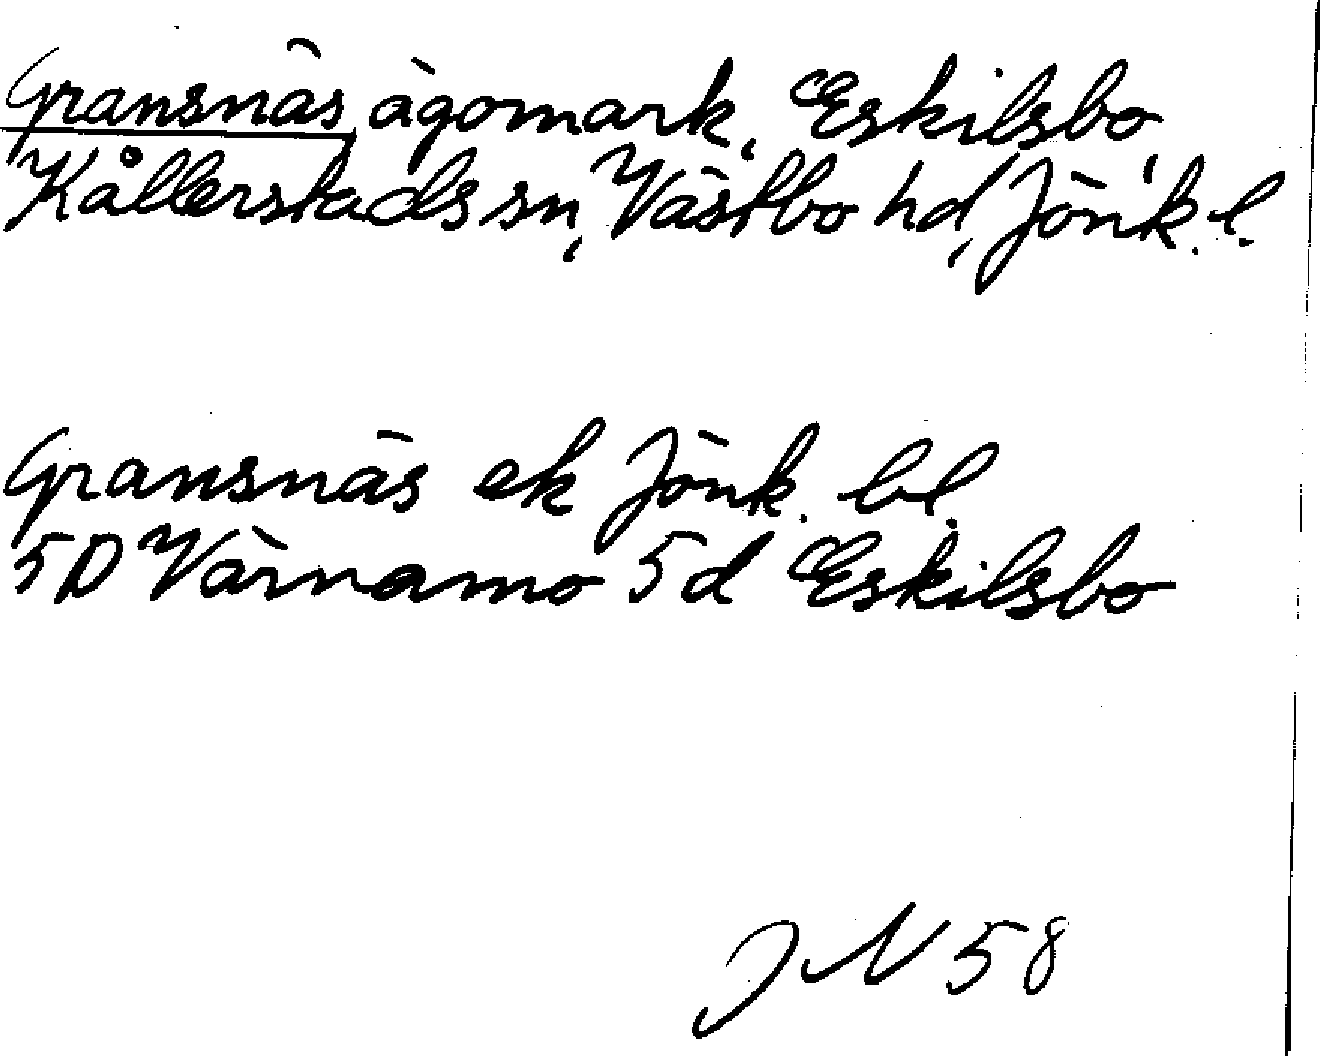 Gransnäs ägomark, Eskilsbo,
Kållerstads sn, Västbo hd, Jönk. l.
Gransnäs ek Jönk. bl
5D Värnamo 5d Eskilsbo
JN 58